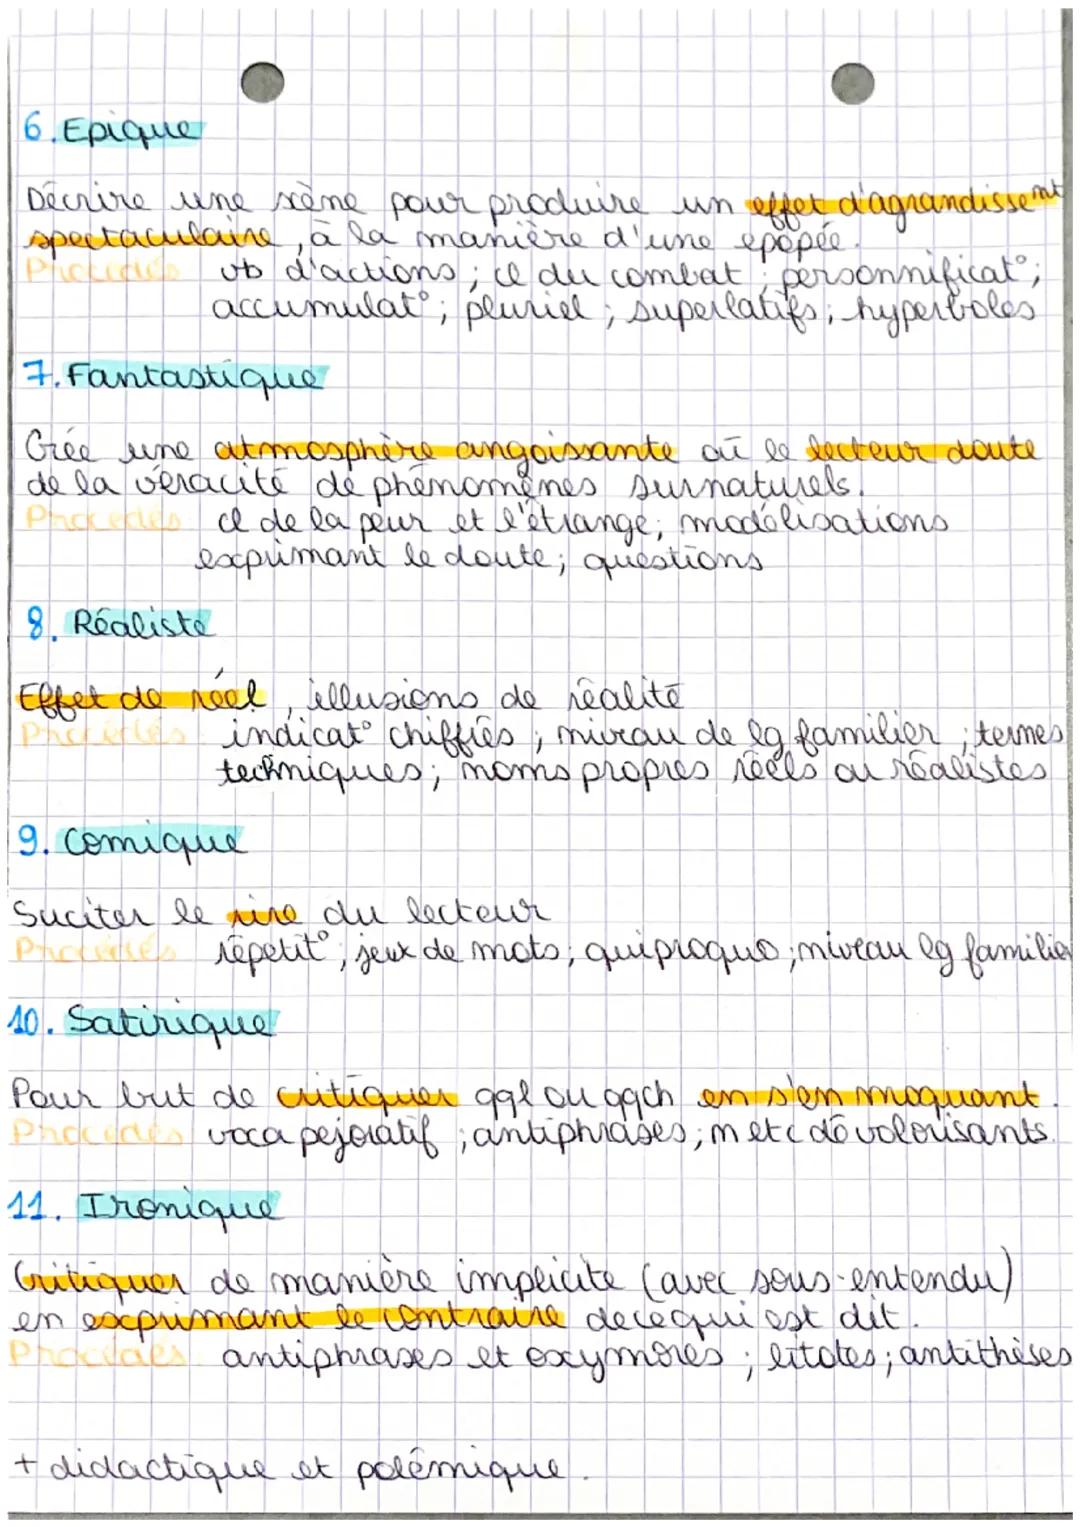 6. Epique
Décrire une scène pour produire un effet d'agrandissemnt
spectaculaire, à la manière d'une épopée.
Procédés vb d'actions ; cl du combat ; personnificat° ;
accumulat° ; pluriel ; superlatifs ; hyperboles
7. Fantastique
Crée une atmosphère angoissante où le lecteur doute
de la véracité de phénomènes surnaturels.
Procédés cl de la peur et l'étrange ; modélisations
exprimant le doute ; questions
8. Réaliste
Effet de réel, illusions de réalité
Procédés indicat° chiffrés ; niveau de lg familier ; termes
techniques ; noms propres réels ou réalistes
9. Comique
Suciter le rire du lecteur
Procédés répetit° ; jeux de mots ; quiproquo ; niveau lg familier
10. Satirique
Pour but de critiquer qql ou qqch en s'en moquant.
Procédés voca pejoratif ; antiphrases ; m etc dévalorisants.
11. Ironique
Critiquer de manière implicite (avec sous-entendu)
en exprimant le contraire de ce qui est dit.
Procédés antiphrases et oxymores ; litotes ; antithèses
+ didactique et polémique.